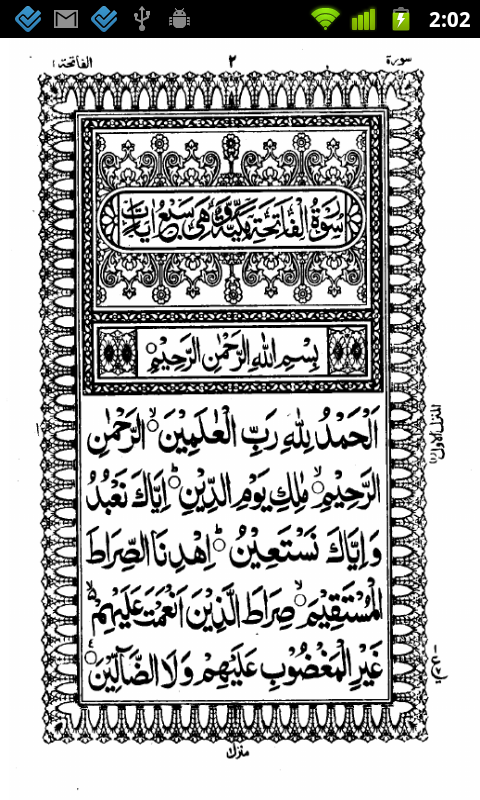 2:02
سورة ٢ الفاتحة ١
سُوْرَةُ الْفَاتِحَةِ مَكِّيَّةٌ وَّهِيَ سَبْعُ اٰيَاتٍ
بِسْمِ اللهِ الرَّحْمٰنِ الرَّحِيْمِ
اَلْحَمْدُ لِلّٰهِ رَبِّ الْعٰلَمِيْنَ ۙ الرَّحْمٰنِ
الرَّحِيْمِ ۙ مٰلِكِ يَوْمِ الدِّيْنِ ؕ اِيَّاكَ نَعْبُدُ
وَاِيَّاكَ نَسْتَعِيْنُ ؕ اِهْدِنَا الصِّرَاطَ
الْمُسْتَقِيْمَ ۙ صِرَاطَ الَّذِيْنَ اَنْعَمْتَ عَلَيْهِمْ ۙ
غَيْرِ الْمَغْضُوْبِ عَلَيْهِمْ وَلَا الضَّآلِّيْنَ
المنزل الاول
منزل